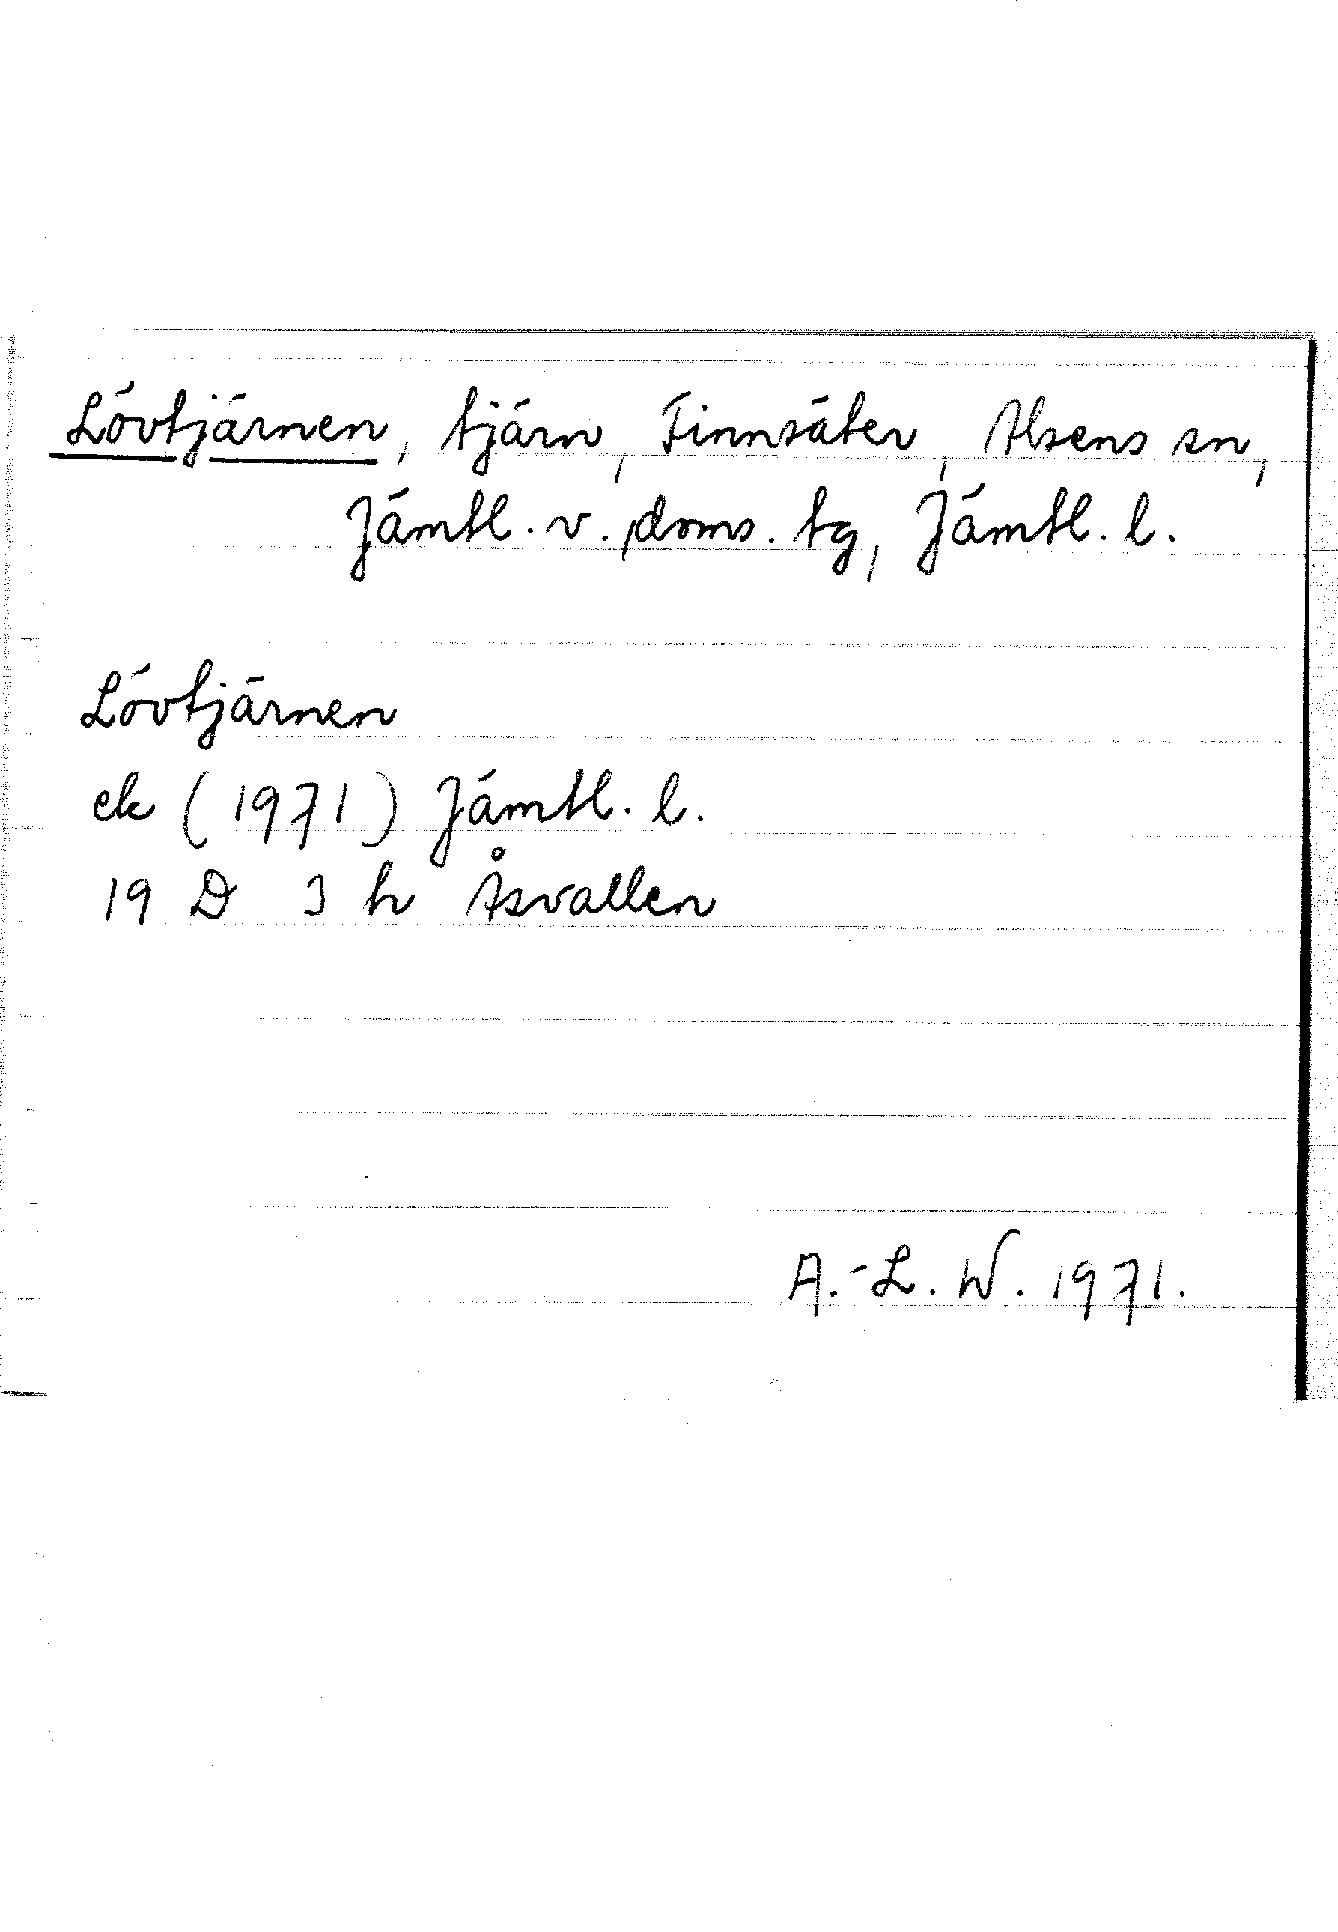 Lövtjärnen, tjärn, Finnsäter, Alsens sn,
Jämtl. v. doms. tg, Jämtl. l.
Lövtjärnen
ek (1971) Jämtl. l.
19 D 3 h Åsvallen
A.-L. W. 1971.